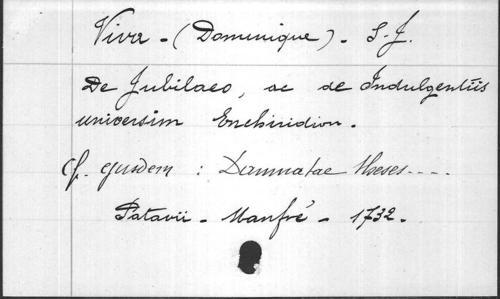 Viva - (Dominique) - S-J.
De Jubilaeo, ac de Indulgentiis
universim Enchiridion.
Cf. ejusdem : Damnatae theses....
Patavii - Manfré - 1732.